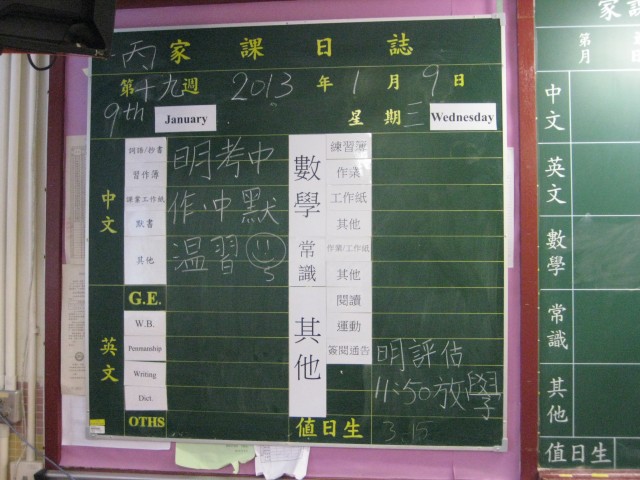 一丙家課日誌
第十九週 2013 年 1 月 9 日
9th January 星期三 Wednesday
中文
詞語/抄書
習作簿
讀業工作紙
默書
其他
明考中
作·中默
温習
G.E.
英文
W.B.
Penmanship
Writing
Dict.
OTHS
數學
練習簿
作業
工作紙
其他
常識
作業/工作紙
其他
其他
閱讀
運動
簽閱通告
明評估
11:50放學
值日生
3.15
家課
第
月
中文
英文
數學
常識
其他
值日生